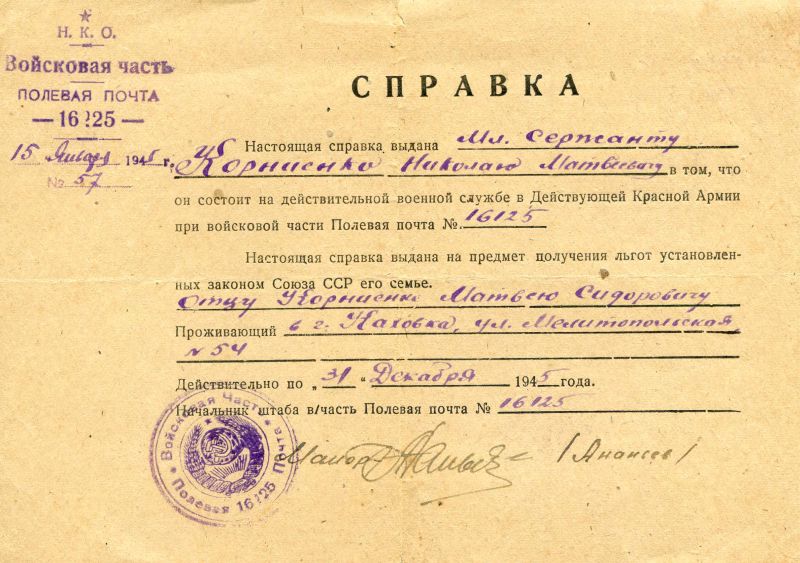 Н. К. О.
Войсковая часть
ПОЛЕВАЯ ПОЧТА
— 16125 —
15 Января 1945 г.
№ 57
СПРАВКА
Настоящая справка выдана Мл. Сержанту
Корниенко Николаю Матвеевичу в том, что
он состоит на действительной военной службе в Действующей Красной Армии
при войсковой части Полевая почта №. 16125
Настоящая справка выдана на предмет получения льгот установлен-
ных законом Союза ССР его семье.
Отцу Корниенко Матвею Сидоровичу
Проживающий в г. Каховка, ул. Мелитопольская
№ 54
Действительно по „31“ Декабря 1945 года.
Начальник штаба в/часть Полевая почта № 16125
Майор /Ананьев/
Войсковая Часть
Полевая Почта 16125